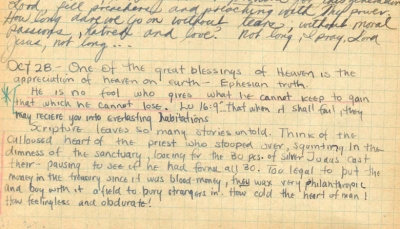 Lord, fill preachers and preaching with Thy power.
How long dare we go on without tears, without moral
passions, hatred and love? Not long, I pray, Lord
Jesus, not long...
Oct 28 - One of the great blessings of Heaven is the
appreciation of heaven on earth - Ephesian truth.
He is no fool who gives what he cannot keep to gain
that which he cannot lose. Lu 16:9 "that when it shall fail, they
may recieve you into everlasting habitations
Scripture leaves so many stories untold. Think of the
calloused heart of the priest who stooped over, squinting in the
dimness of the sanctuary, looking for the 30 pcs. of silver Judas cast
there - pausing to see if he had found all 30. Too legal to put the
money in the treasury since it was blood-money, they wax very philanthropic
and buy with it a field to bury strangers in. How cold the heart of man!
How feelingless and obdurate!